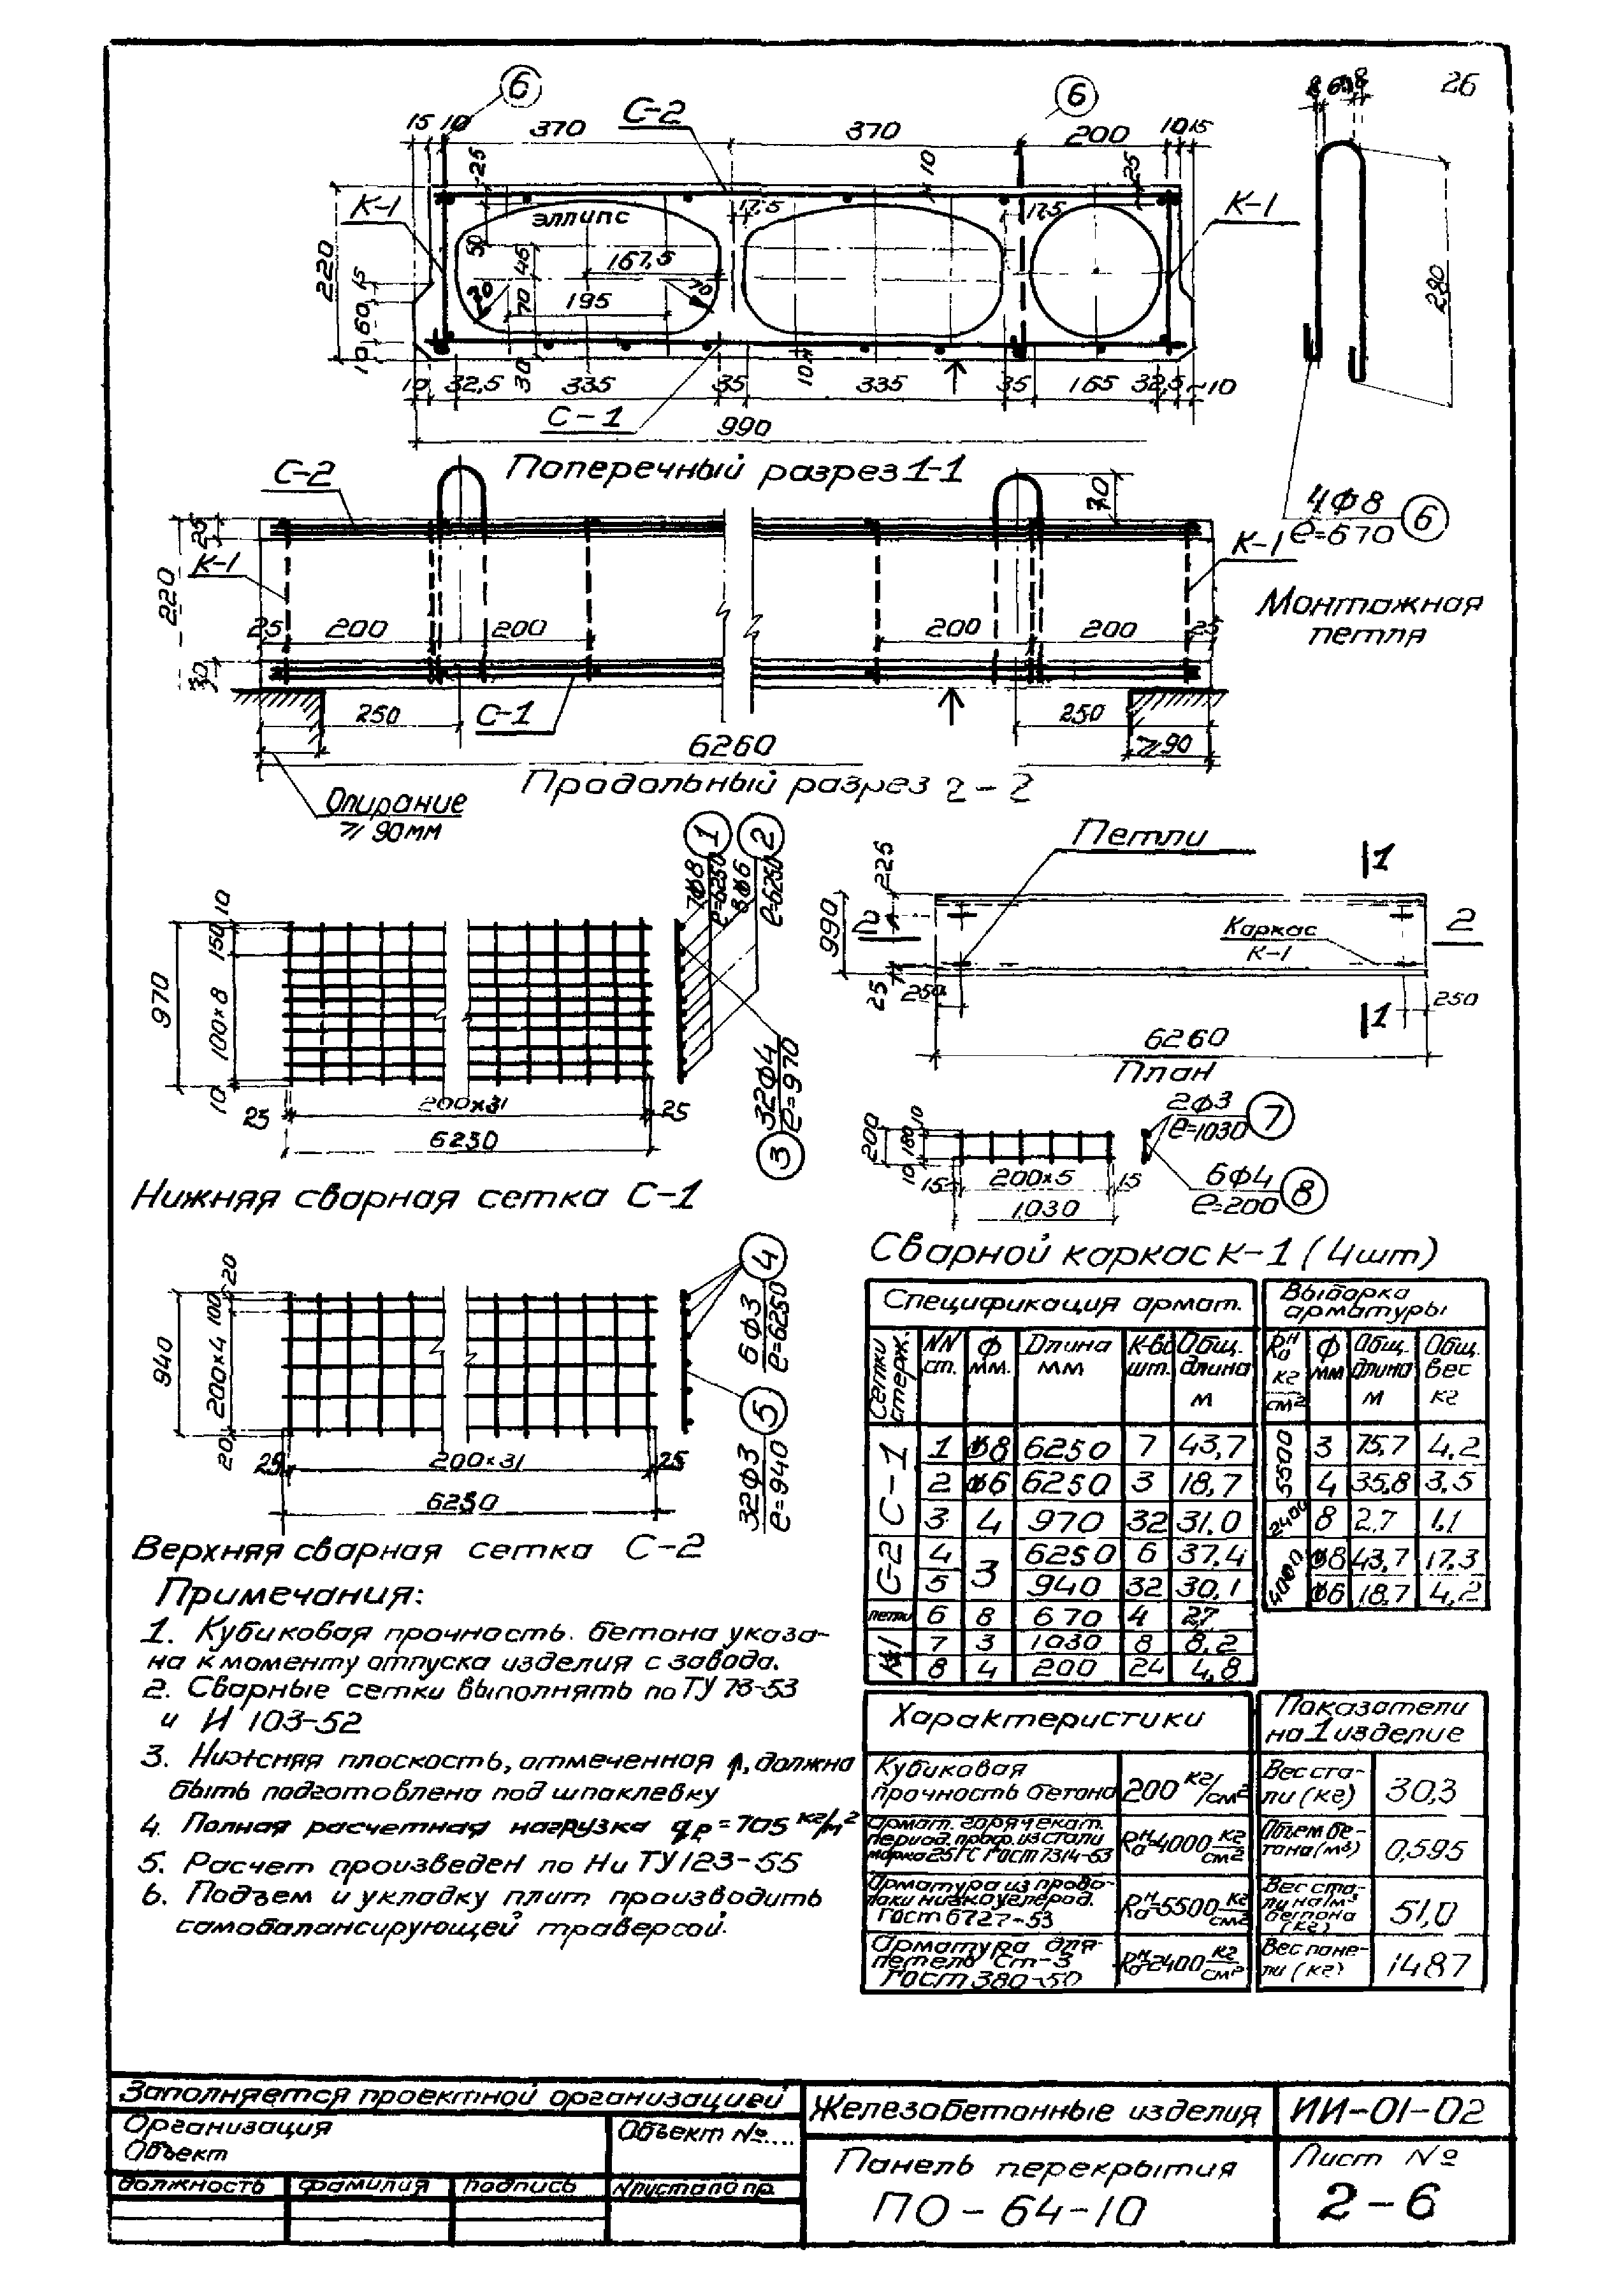 26
6
6
С-2
15 10
370
370
200
10 15
25
10
25
К-1
эллипс
17,5
17,5
К-1
220
50
45
167,5
15
60
10
70
195
70
70
30
10
10
32,5
335
35
335
35
165
32,5
10
С-1
990
280
Поперечный разрез 1-1
4Ф8
ℓ=670
6
Монтажная
петля
С-2
70
25
К-1
К-1
220
25
200
200
200
200
25
30
250
С-1
250
6260
≥90
Продольный разрез 2-2
Опирание
≥ 90мм
1
2
7Ф8
ℓ=6250
8Ф6
ℓ=6250
10
150
970
100×8
10
25
200×31
25
6230
32Ф4
ℓ=970
3
Нижняя сварная сетка С-1
Петли
1
225
990
2
2
Каркас
К-1
25
250
1
250
6260
План
200
10
180
10
15
200×5
15
1030
2Ф3
ℓ=1030
7
6Ф4
ℓ=200
8
Сварной каркас К-1 (4шт)
20
100
940
200×4
20
25
200×31
25
6250
4
6Ф3
ℓ=6250
5
32Ф3
ℓ=940
Верхняя сварная сетка С-2
Примечания:
1. Кубиковая прочность бетона указа-
на к моменту отпуска изделия с завода.
2. Сварные сетки выполнять по ТУ 73-53
и И 103-52
3. Нижняя плоскость, отмеченная ↑, должна
быть подготовлена под шпаклевку
4. Полная расчетная нагрузка qp=705 кг/м²
5. Расчет произведен по НиТУ123-55
6. Подъем и укладку плит производить
самобалансирующей траверсой.
Спецификация армат.
Сетки стерж. NN ст. Ф мм. Длина мм К-во шт. Общ. длина м
С-1 1 Ф8 6250 7 43,7
2 Ф6 6250 3 18,7
3 4 970 32 31,0
С-2 4 3 6250 6 37,4
5 940 32 30,1
петли 6 8 670 4 2,7
К-1 7 3 1030 8 8,2
8 4 200 24 4,8
Выборка
арматуры
Rан кг/см² Ф мм Общ. длина м Общ. вес кг
5500 3 75,7 4,2
4 35,8 3,5
2400 8 2,7 1,1
4000 Ф8 43,7 17,3
Ф6 18,7 4,2
Характеристики
Кубиковая
прочность бетона 200 кг/см²
Армат. горячекат.
период. проф. из стали
марка 25ГС ГОСТ 7314-53 Rан=4000 кг/см²
Арматура из прово-
локи низкоуглерод.
ГОСТ 6727-53 Rан=5500 кг/см²
Арматура для
петель Ст-3
ГОСТ 380-50 Rан=2400 кг/см²
Показатели
на 1 изделие
Вес ста-
ли (кг) 30,3
Объем бе-
тона (м³) 0,595
Вес ста-
ли на 1м³
бетона
(кг) 51,0
Вес пане-
ли (кг) 1487
Заполняется проектной организацией
Организация
Объект
Объект №...
должность фамилия подпись №листа по пр.
Железобетонные изделия
ИИ-01-02
Панель перекрытия
ПО-64-10
Лист №
2-6